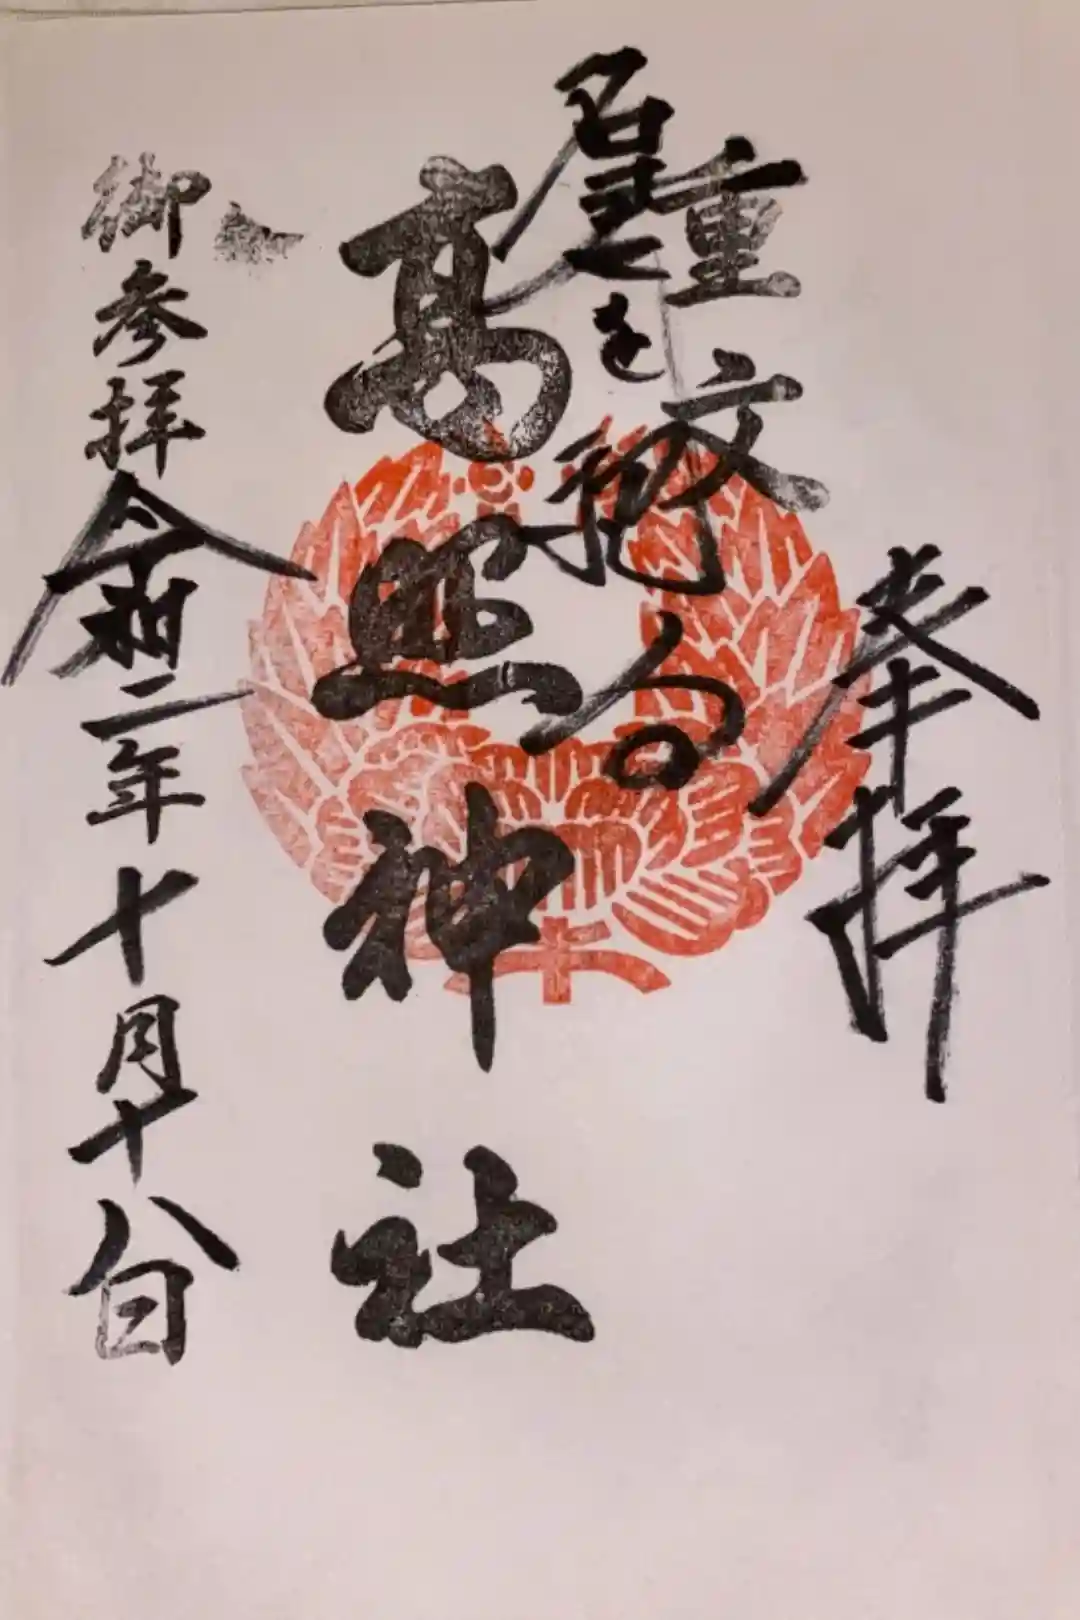 奉拝
重文
高照神社
御参拝 令和二年十月十八日